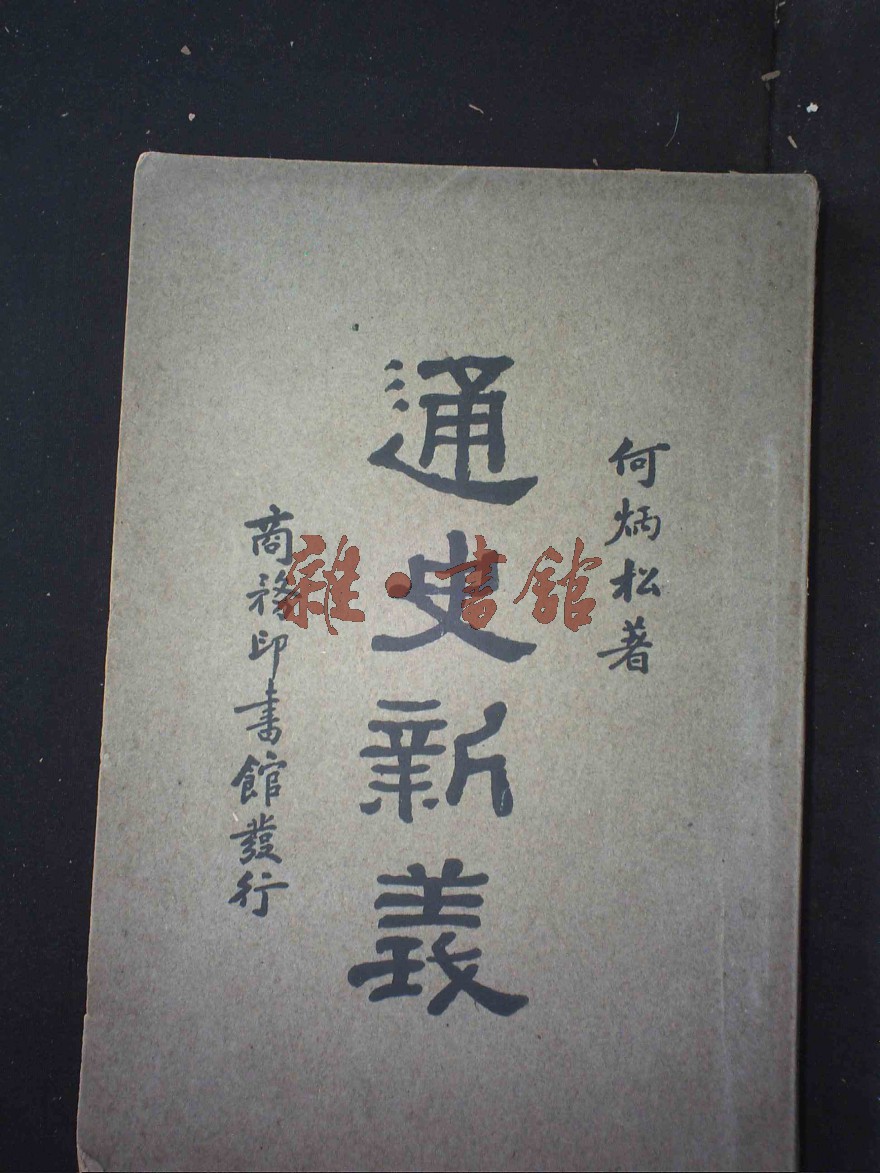 何炳松著
通史新義
商務印書館發行
雜·書館